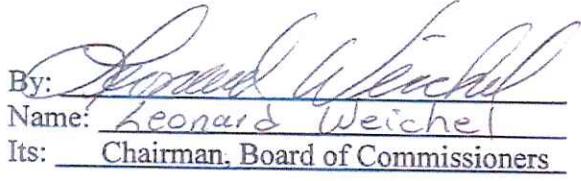 By: Leonard Weichel
Name: Leonard Weichel
Its: Chairman, Board of Commissioners